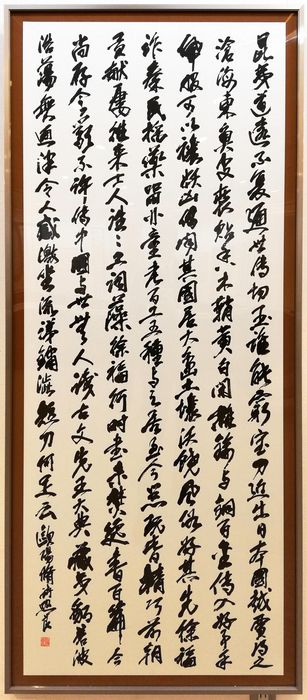 昆夷道遠不復通世傳切玉誰能窮寶刀近出日本國越賈得之
滄海東魚皮裝貼香木鞘黃白閒雜鍮与銅百金傳入好事手
佩服可以禳妖凶傳聞其國居大島土壤沃饒風俗好其先徐福
詐秦民採藥淹留丱童老百工五種与之居至今器玩皆精巧前朝
貢獻屢往来士人往々工詞藻徐福行時書未焚逸書百篇今
尚存令嚴不許傳中國舉世無人識古文先王大典藏夷貊蒼波
浩蕩無通津令人感激坐流涕鏽澁短刀何足云 歐陽脩詩